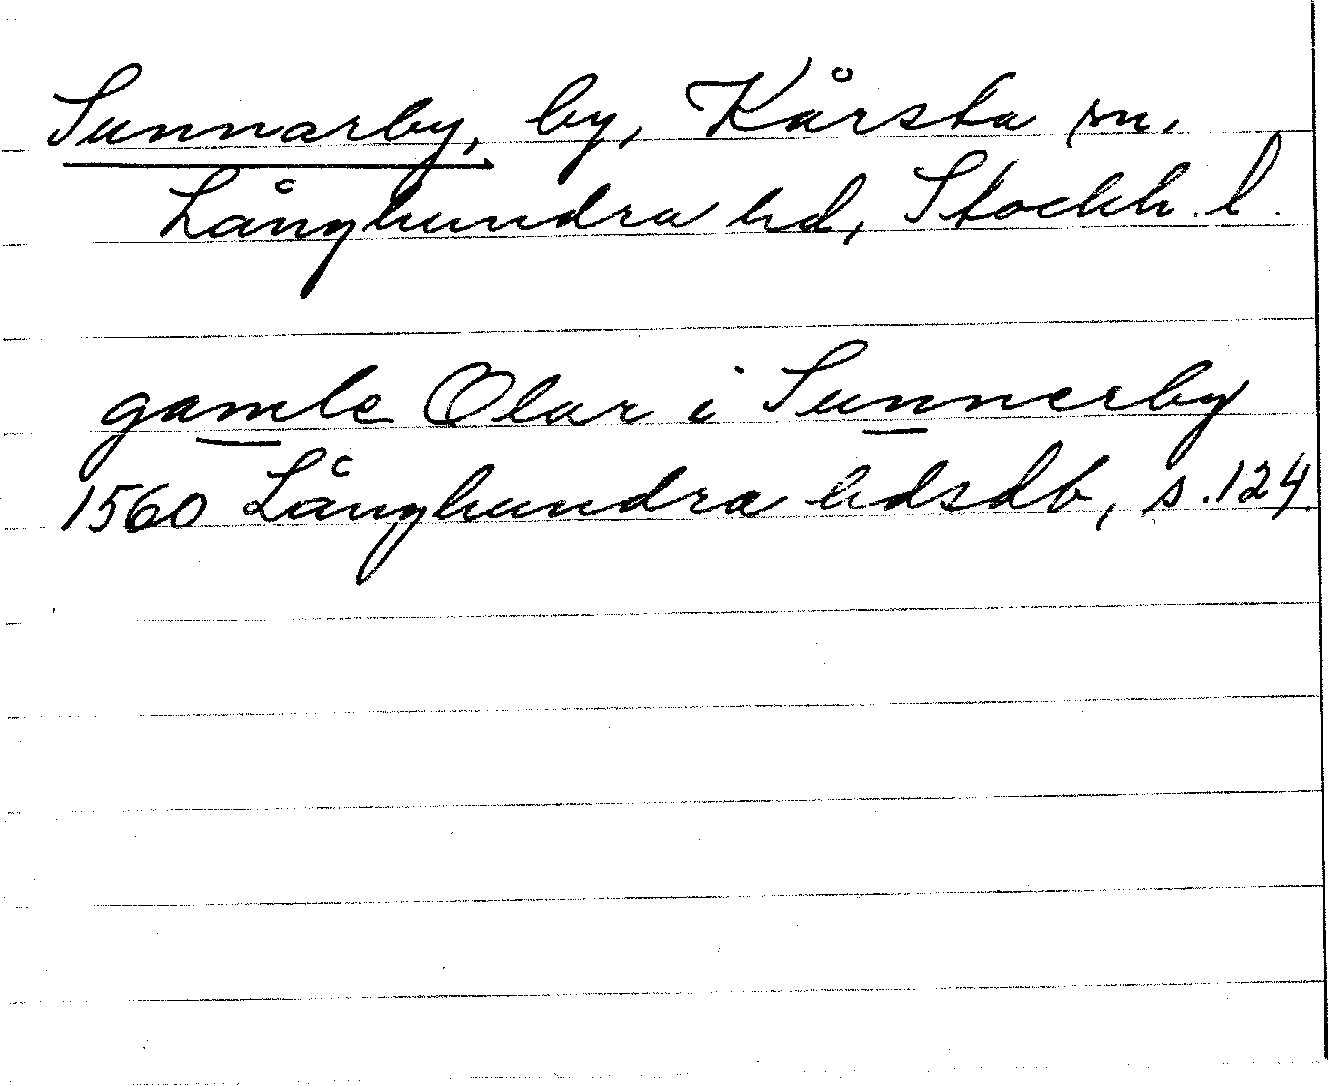 Sunnarby, by, Kårsta sn.
Långhundra hd, Stockh. l.
gamle Olar i Sunnerby
1560 Långhundra hdsdb, s. 124.